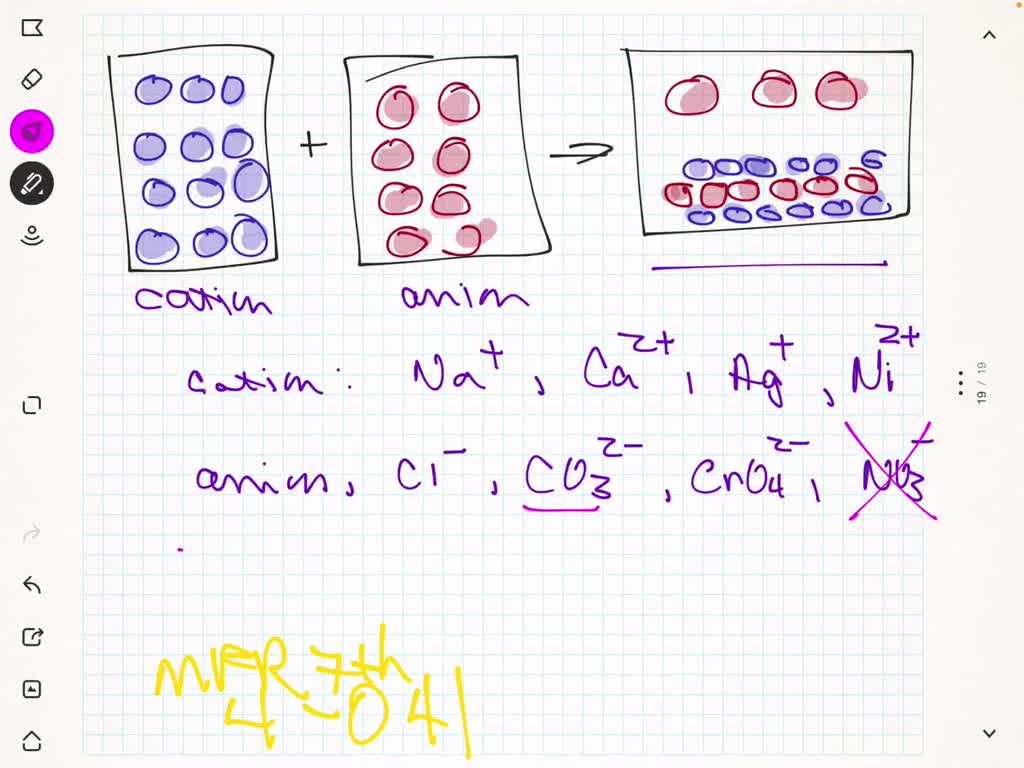 + ⇒
cation anion
cation: Na⁺, Ca²⁺, Ag⁺, Ni²⁺
anion, Cl⁻, CO₃²⁻, CrO₄²⁻, NO₃⁻
7th
4-041
19 / 19